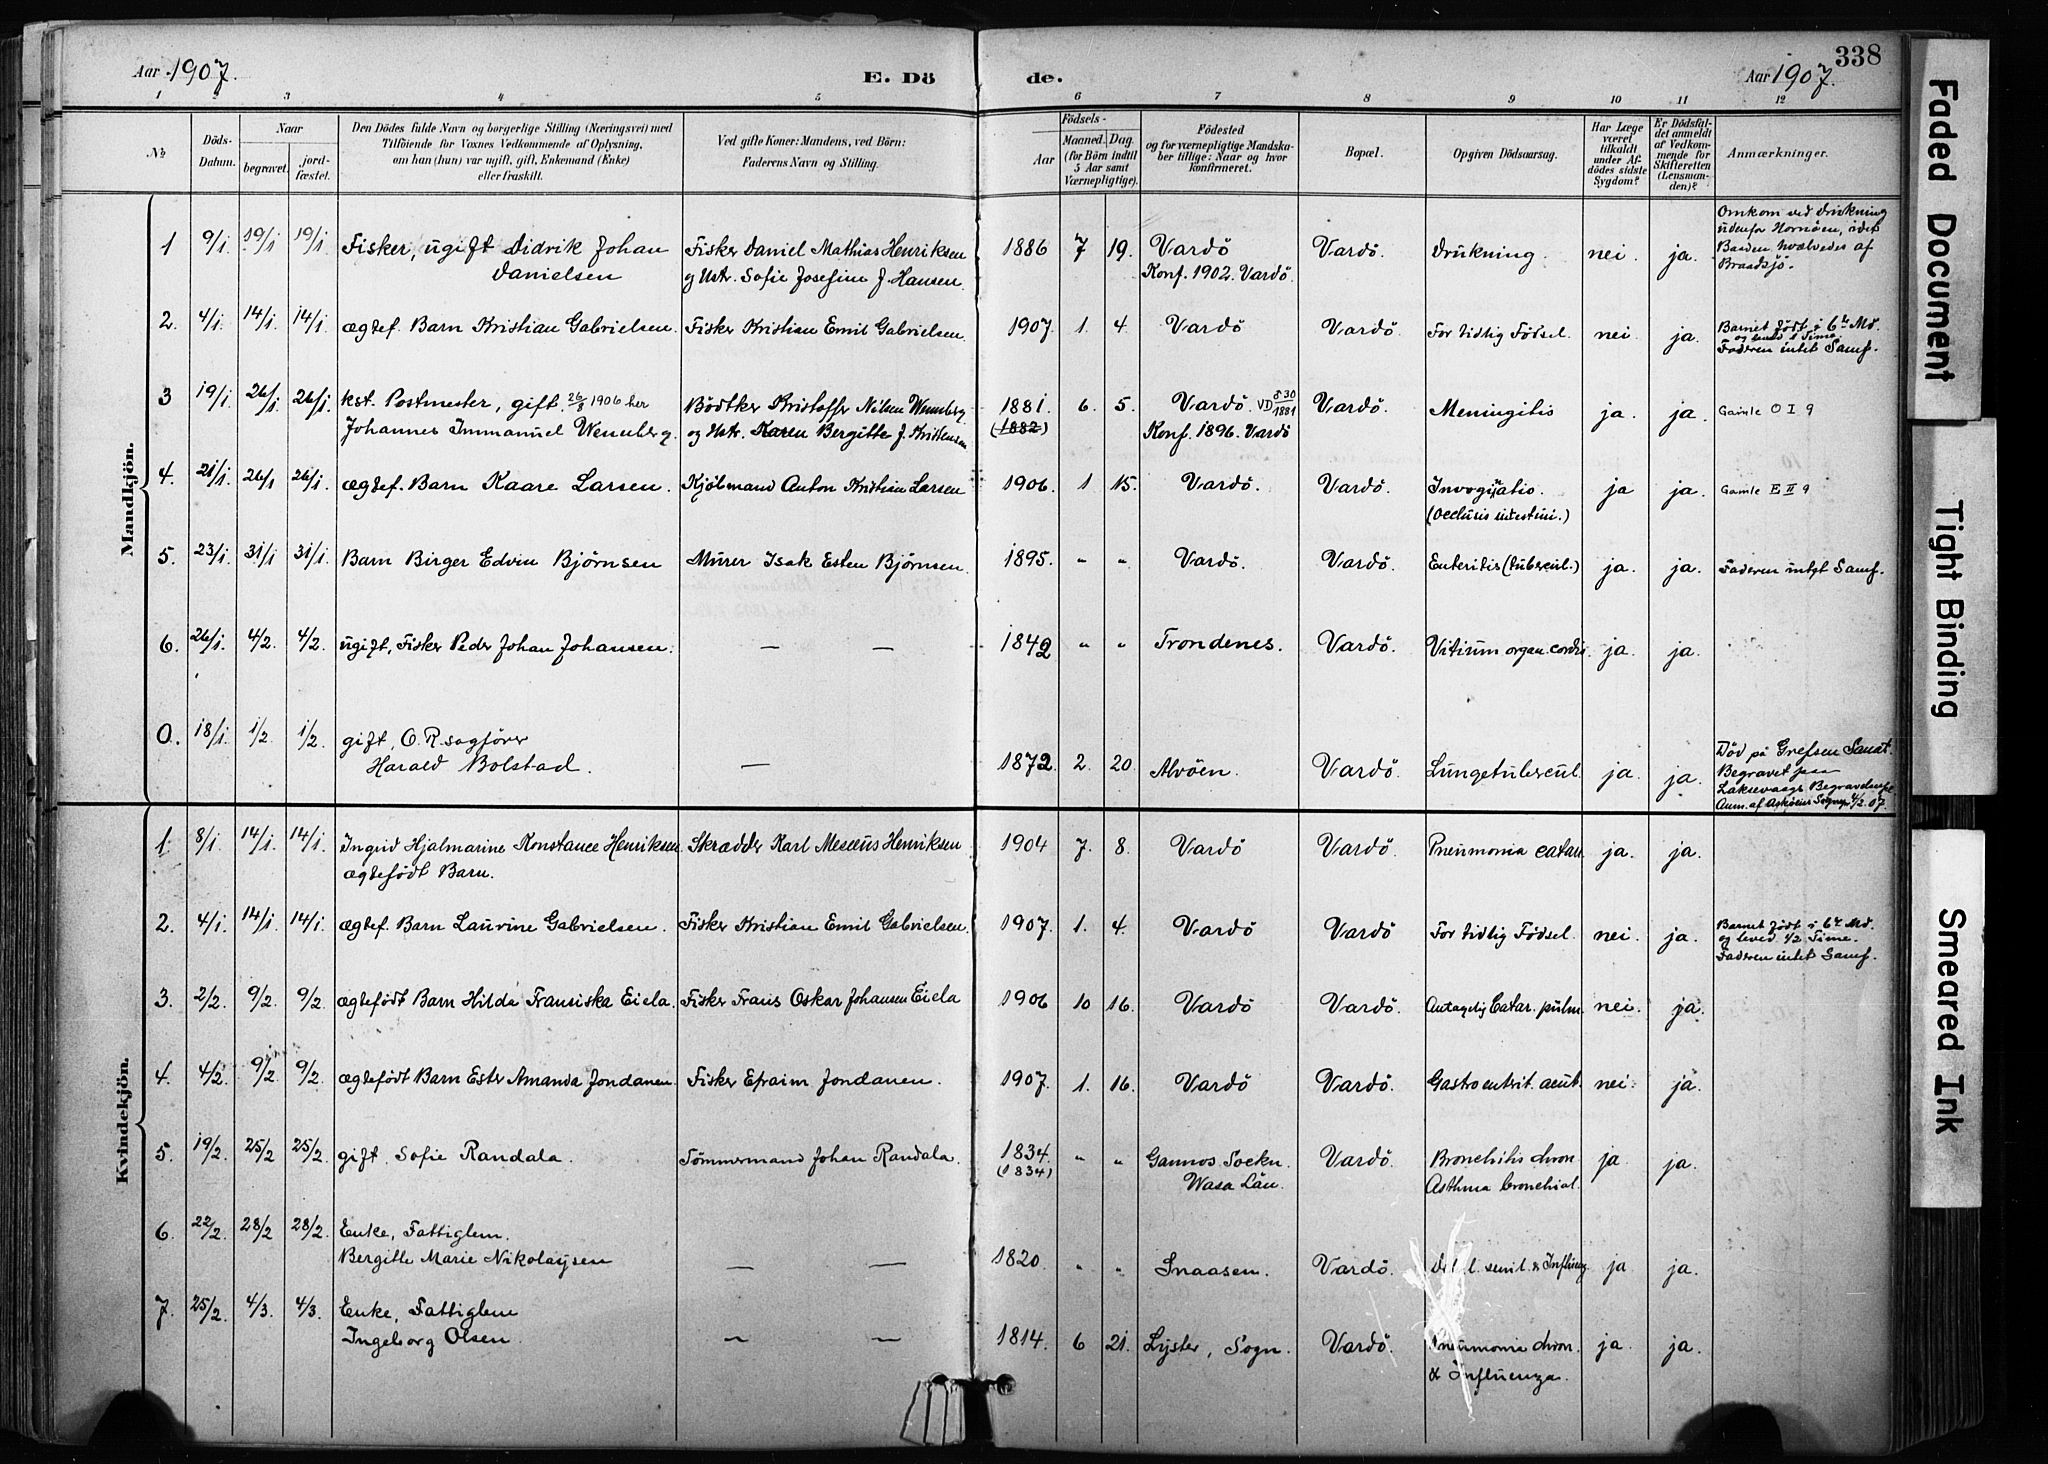 338
Aar 1907.
E. Dö
de.
Aar 1907.
1 2 3 4 5 6 7 8 9 10 11 12
No
Döds-
Datum.
Naar
begravet.
jord-
fæstet.
Den Dödes fulde Navn og borgerlige Stilling (Næringsvei) med
Tilföiende for Voxnes Vedkommende af Oplysning,
om han (hun) var ugift, gift, Enkemand (Enke)
eller fraskilt.
Ved gifte Koner: Mandens, ved Börn:
Faderens Navn og Stilling.
Födsels-
Aar
Maaned. Dag.
(for Börn indtil
5 Aar samt
Værnepligtige).
Födested
og for værnepligtige Mandska-
ber tillige: Naar og hvor
konfirmeret.
Bopæl.
Opgiven Dödsaarsag.
Har Læge
været
tilkaldt
under Af-
dödes sidste
Sygdom?
Er Dödsfal-
det anmeldt
af Vedkom-
mende for
Skifteretten
(Lensman-
den)?
Anmærkninger.
Mandkjön.
1 9/1 19/1 19/1 Fisker, ugift Didrik Johan Fisker Daniel Mathias Henriksen 1886 7 19. Vardö Vardö. Drukning. nei. ja.
Danielsen og Ustr. Sofie Josefine J. Hansen. Konf. 1902. Vardö.
Omkom ved drukning
udenfor Hornöen, idet
Baaden hvælvedes af
Braadsjö.
2. 4/1 14/1 14/1 ægtef. Barn Kristian Gabrielsen. Fisker Kristian Emil Gabrielsen. 1907. 1. 4. Vardö Vardö. For tidlig Födsel. nei. ja.
Barnet födt i 6te Md.
Faderen intet Samf.
3 19/1 26/1 26/1 kst. Postmester, gift 26/8 1906 her Bödtker Kristoffer Nilsen Wennberg 1881. 6. 5. Vardö. VD § 30 1881 Vardö. Meningitis ja. ja. Gamle O I 9
Johannes Immanuel Wennberg. og Ustr. Karen Bergitte J. Kristensen (1882) Konf. 1896. Vardö
4. 21/1 26/1 26/1 ægtef. Barn Kaare Larsen. Kjöbmand Anton Kristian Larsen 1906. 1 15. Vardö. Vardö. ja ja. Gamle E II 9
(Occlusis intestini.)
5. 23/1 31/1 31/1 Barn Birger Edvin Björnsen Murer Isak Esten Björnsen. 1895. " " Vardö. Vardö. Enteritis (tubercul.) ja. ja. Faderen intet Samf.
6. 26/1 4/2 4/2. ugift, Fisker Peder Johan Johansen. — — 1842 " " Trondenes. Vardö. Vitium organ. cordis ja. ja.
O. 18/1 1/2 1/2. gift, O. R. sagförer
Harald Bolstad. — 1872 2. 20. Alvöen. Vardö. Lungetubercul. ja. ja.
Död på Grefsen Sanat.
Begravet paa
Laksevaags Begravelsespl.
Kvindekjön.
1. 8/1 14/1 14/1 Ingrid Hjalmarine Konstance Henriksen Skrædder Karl Henriksen 1904 7. 8. Vardö Vardö. Pneumonia catarr. ja. ja.
ægtefödt Barn.
2. 4/1 14/1 14/1 ægtef. Barn Laurine Gabrielsen. Fisker Kristian Emil Gabrielsen. 1907. 1. 4. Vardö Vardö For tidlig Födsel. nei. ja.
Barnet födt i 6te Md.
og leved 1/2 Time.
Faderen intet Samf.
3. 2/2 9/2 9/2 ægtefödt Barn Hilda Fransiska Eiela Fisker Frans Oskar Johansen Eiela 1906 10 16. Vardö Vardö. Antagelig Catar. pulm. nei. ja.
4. 4/2. 9/2 9/2. ægtefödt Barn Ester Amanda Jondanen. Fisker Efraim Jondanen. 1907. 1. 16. Vardö Vardö. Gastroentrit. acut. nei. ja.
5. 19/2. 25/2 25/2. gift. Sofie Randala. Tömmermand Johan Randala. 1834. " " Vardö. Bronchitis chron ja. ja.
(1834) Wasa Län. Asthma bronchial.
6. 22/2. 28/2 28/2. Enke, Fattiglem.
Bergitte Marie Nikolaysen — — 1820. " " Snaasen. Vardö. senil. & Influenz ja ja.
7. 25/2. 4/3. 4/3. Enke, Fattiglem
Ingeborg Olsen. — — 1814. 6 21. Lyster, Sogn. Vardö. Pneumonia chron ja. ja.
& Influenza.
Faded Document
Tight Binding
Smeared Ink